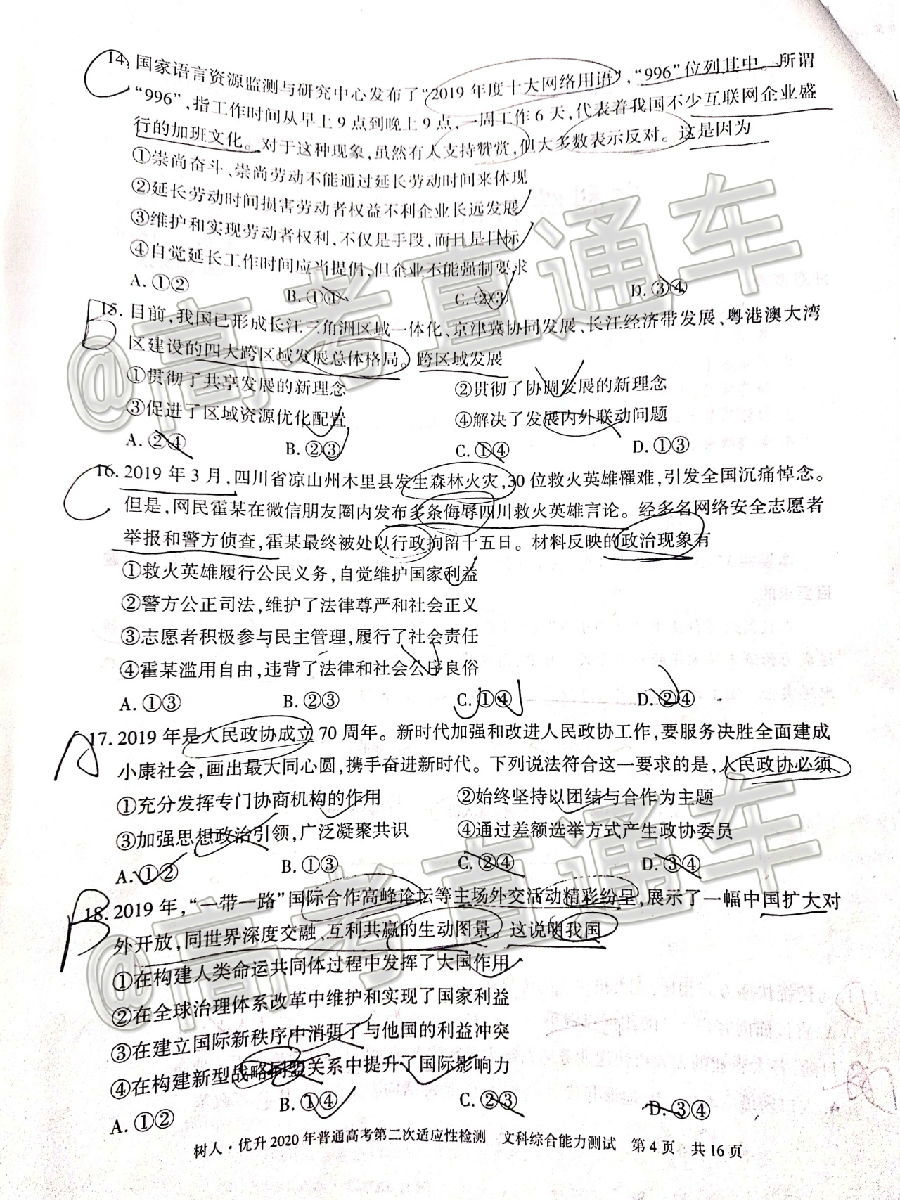 14. 国家语言资源监测与研究中心发布了“2019年度十大网络用语”，“996”位列其中。所谓
“996”，指工作时间从早上9点到晚上9点，一周工作6天，代表着我国不少互联网企业盛
行的加班文化。对于这种现象，虽然有人支持赞赏，但大多数表示反对。这是因为
①崇尚奋斗、崇尚劳动不能通过延长劳动时间来体现
②延长劳动时间损害劳动者权益不利企业长远发展
③维护和实现劳动者权利，不仅是手段，而且是目标
④自觉延长工作时间应当提倡，但企业不能强制要求
A. ①② B. ①④ C. ②③ D. ③④
C
15. 目前，我国已形成长江三角洲区域一体化、京津冀协同发展、长江经济带发展、粤港澳大湾
区建设的四大跨区域发展总体格局。跨区域发展
①贯彻了共享发展的新理念 ②贯彻了协调发展的新理念
③促进了区域资源优化配置 ④解决了发展内外联动问题
A. ②④ B. ②③ C. ①④ D. ①③
B
16. 2019年3月，四川省凉山州木里县发生森林火灾，30位救火英雄罹难，引发全国沉痛悼念。
但是，网民霍某在微信朋友圈内发布多条侮辱四川救火英雄言论。经多名网络安全志愿者
举报和警方侦查，霍某最终被处以行政拘留十五日。材料反映的政治现象有
①救火英雄履行公民义务，自觉维护国家利益
②警方公正司法，维护了法律尊严和社会正义
③志愿者积极参与民主管理，履行了社会责任
④霍某滥用自由，违背了法律和社会公序良俗
A. ①③ B. ②③ C. ①④ D. ②④
C
17. 2019年是人民政协成立70周年。新时代加强和改进人民政协工作，要服务决胜全面建成
小康社会，画出最大同心圆，携手奋进新时代。下列说法符合这一要求的是，人民政协必须
①充分发挥专门协商机构的作用 ②始终坚持以团结与合作为主题
③加强思想政治引领，广泛凝聚共识 ④通过差额选举方式产生政协委员
A. ①② B. ①③ C. ②④ D. ③④
A
18. 2019年，“一带一路”国际合作高峰论坛等主场外交活动精彩纷呈，展示了一幅中国扩大对
外开放，同世界深度交融，互利共赢的生动图景。这说明我国
①在构建人类命运共同体过程中发挥了大国作用
②在全球治理体系改革中维护和实现了国家利益
③在建立国际新秩序中消弭了与他国的利益冲突
④在构建新型战略同盟关系中提升了国际影响力
A. ①② B. ①④ C. ②③ D. ③④
B
树人·优升2020年普通高考第二次适应性检测 文科综合能力测试 第4页 共16页
@高考直通车
@高考直通车